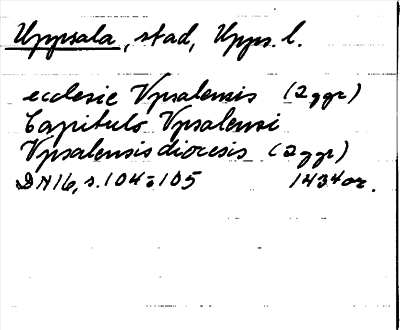 Uppsala, stad, Upps. l.
ecclesie Vpsalensis (2 ggr)
Capitulo Vpsalensi
Vpsalensis diocesis (2 ggr)
DN 16, s. 104-105 1434 or.